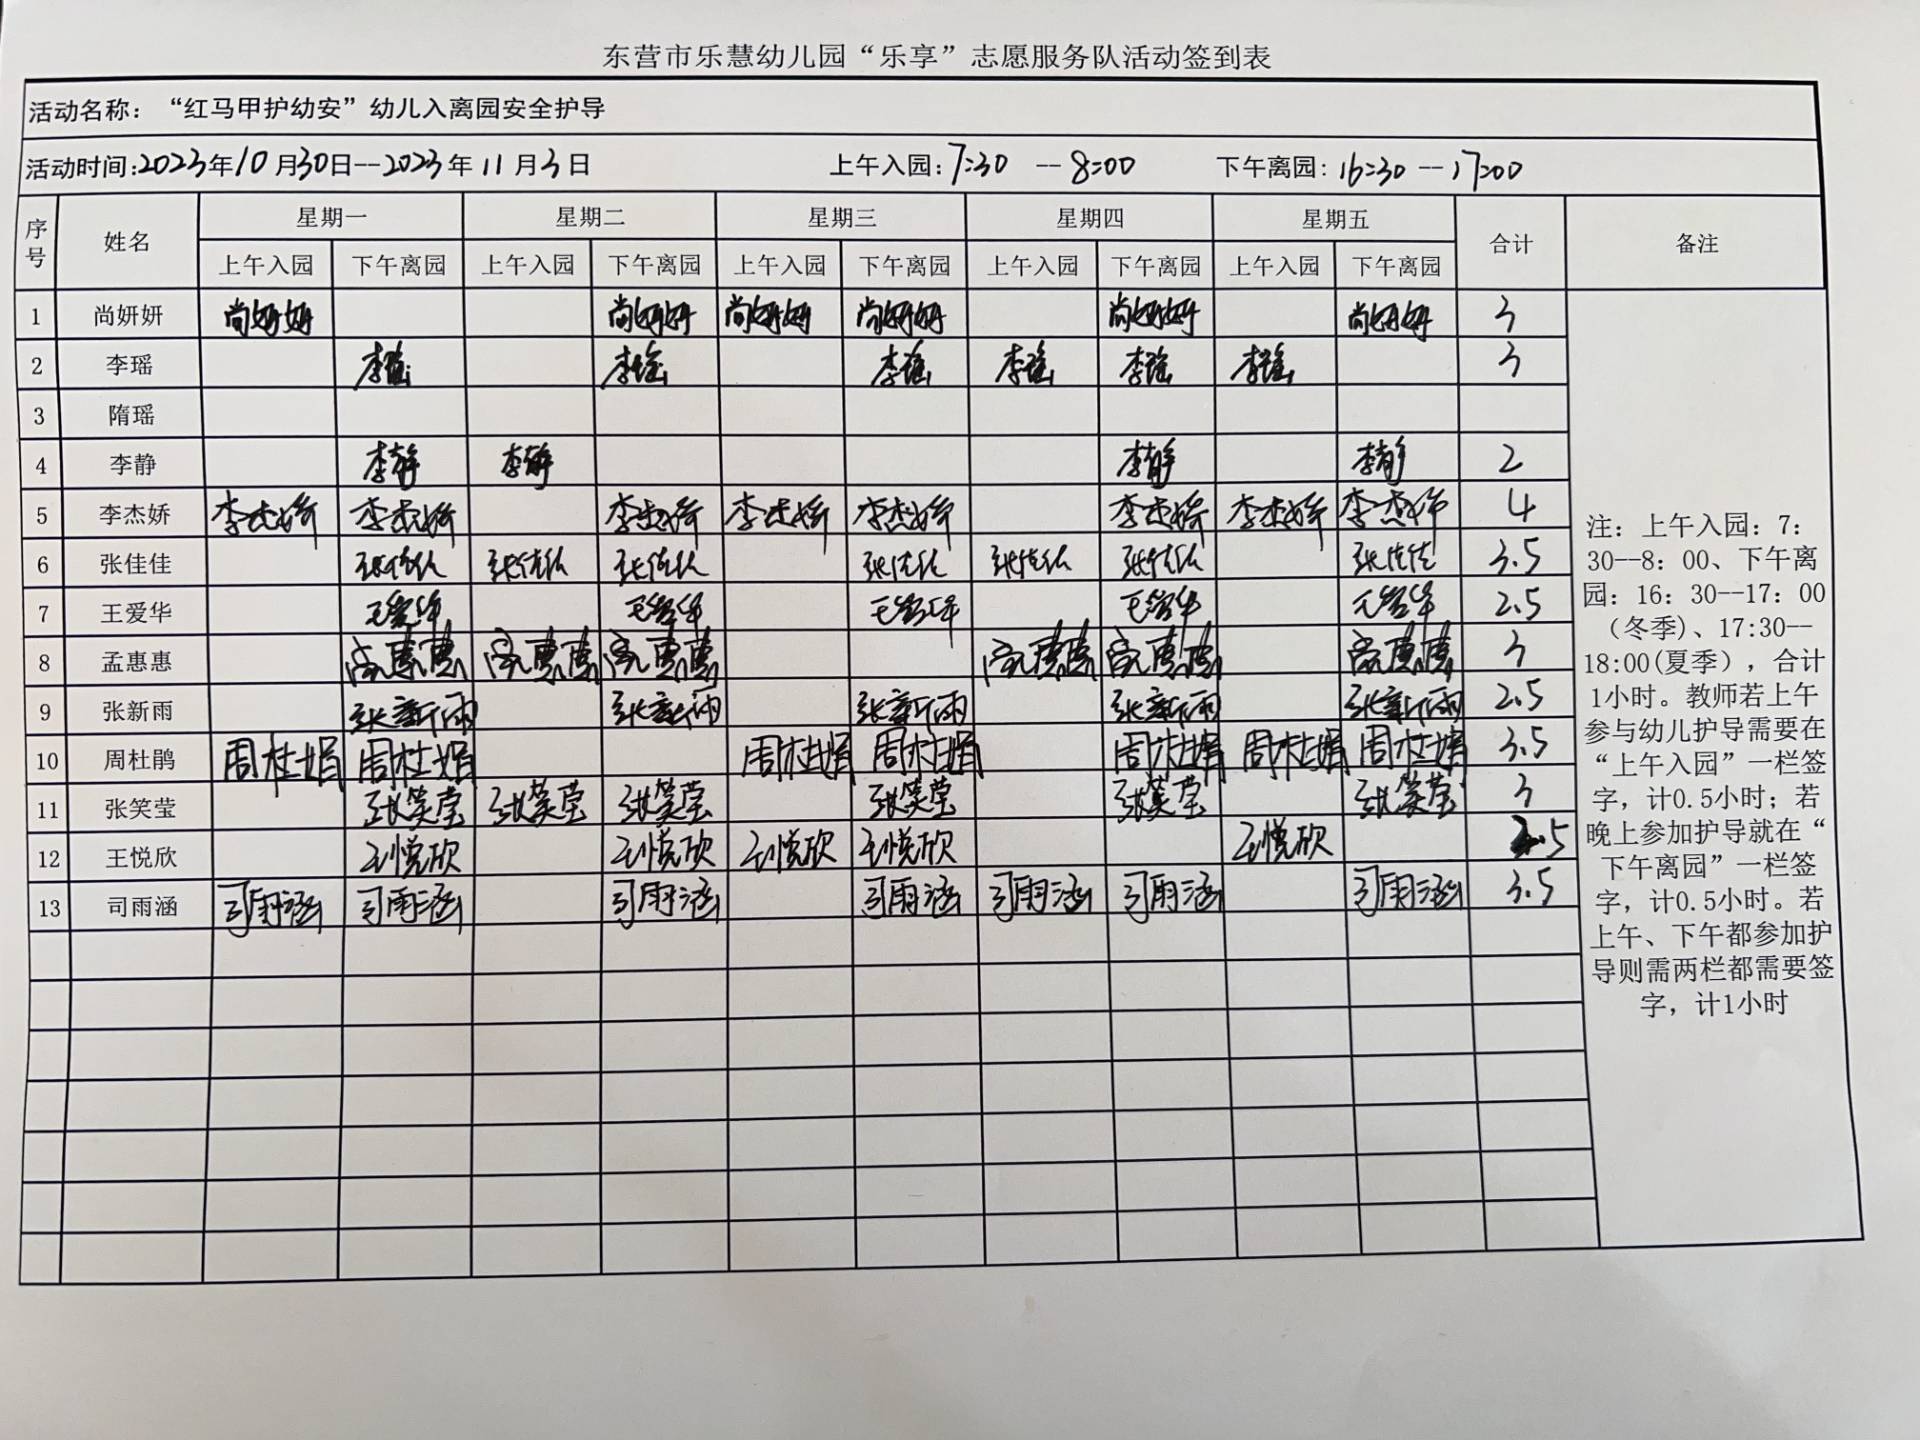 东营市乐慧幼儿园“乐享”志愿服务队活动签到表
活动名称：“红马甲护幼安”幼儿入离园安全护导
活动时间:2023年10月30日--2023年11月3日 上午入园:7:30 -- 8:00 下午离园:16:30 -- 17:00
序号 姓名 星期一 星期二 星期三 星期四 星期五 合计 备注
上午入园 下午离园 上午入园 下午离园 上午入园 下午离园 上午入园 下午离园 上午入园 下午离园
1 尚妍妍 尚妍妍 尚妍妍 尚妍妍 尚妍妍 尚妍妍 尚妍妍 3
2 李瑶 李瑶 李瑶 李瑶 李瑶 李瑶 李瑶 3
3 隋瑶
4 李静 李静 李静 李静 李静 2
5 李杰娇 李杰娇 李杰娇 李杰娇 李杰娇 李杰娇 李杰娇 李杰娇 李杰娇 4
6 张佳佳 张佳佳 张佳佳 张佳佳 张佳佳 张佳佳 张佳佳 张佳佳 3.5
7 王爱华 王爱华 王爱华 王爱华 王爱华 王爱华 2.5
8 孟惠惠 孟惠惠 孟惠惠 孟惠惠 孟惠惠 孟惠惠 孟惠惠 3
9 张新雨 张新雨 张新雨 张新雨 张新雨 张新雨 2.5
10 周杜鹃 周杜娟 周杜娟 周杜娟 周杜娟 周杜娟 周杜娟 周杜娟 3.5
11 张笑莹 张笑莹 张笑莹 张笑莹 张笑莹 张笑莹 张笑莹 3
12 王悦欣 王悦欣 王悦欣 王悦欣 王悦欣 王悦欣 2.5
13 司雨涵 司雨涵 司雨涵 司雨涵 司雨涵 司雨涵 司雨涵 司雨涵 3.5
注：上午入园：7：
30--8：00、下午离
园：16：30--17：00
（冬季)、17:30--
18:00(夏季），合计
1小时。教师若上午
参与幼儿护导需要在
“上午入园”一栏签
字，计0.5小时；若
晚上参加护导就在“
下午离园”一栏签
字，计0.5小时。若
上午、下午都参加护
导则需两栏都需要签
字，计1小时